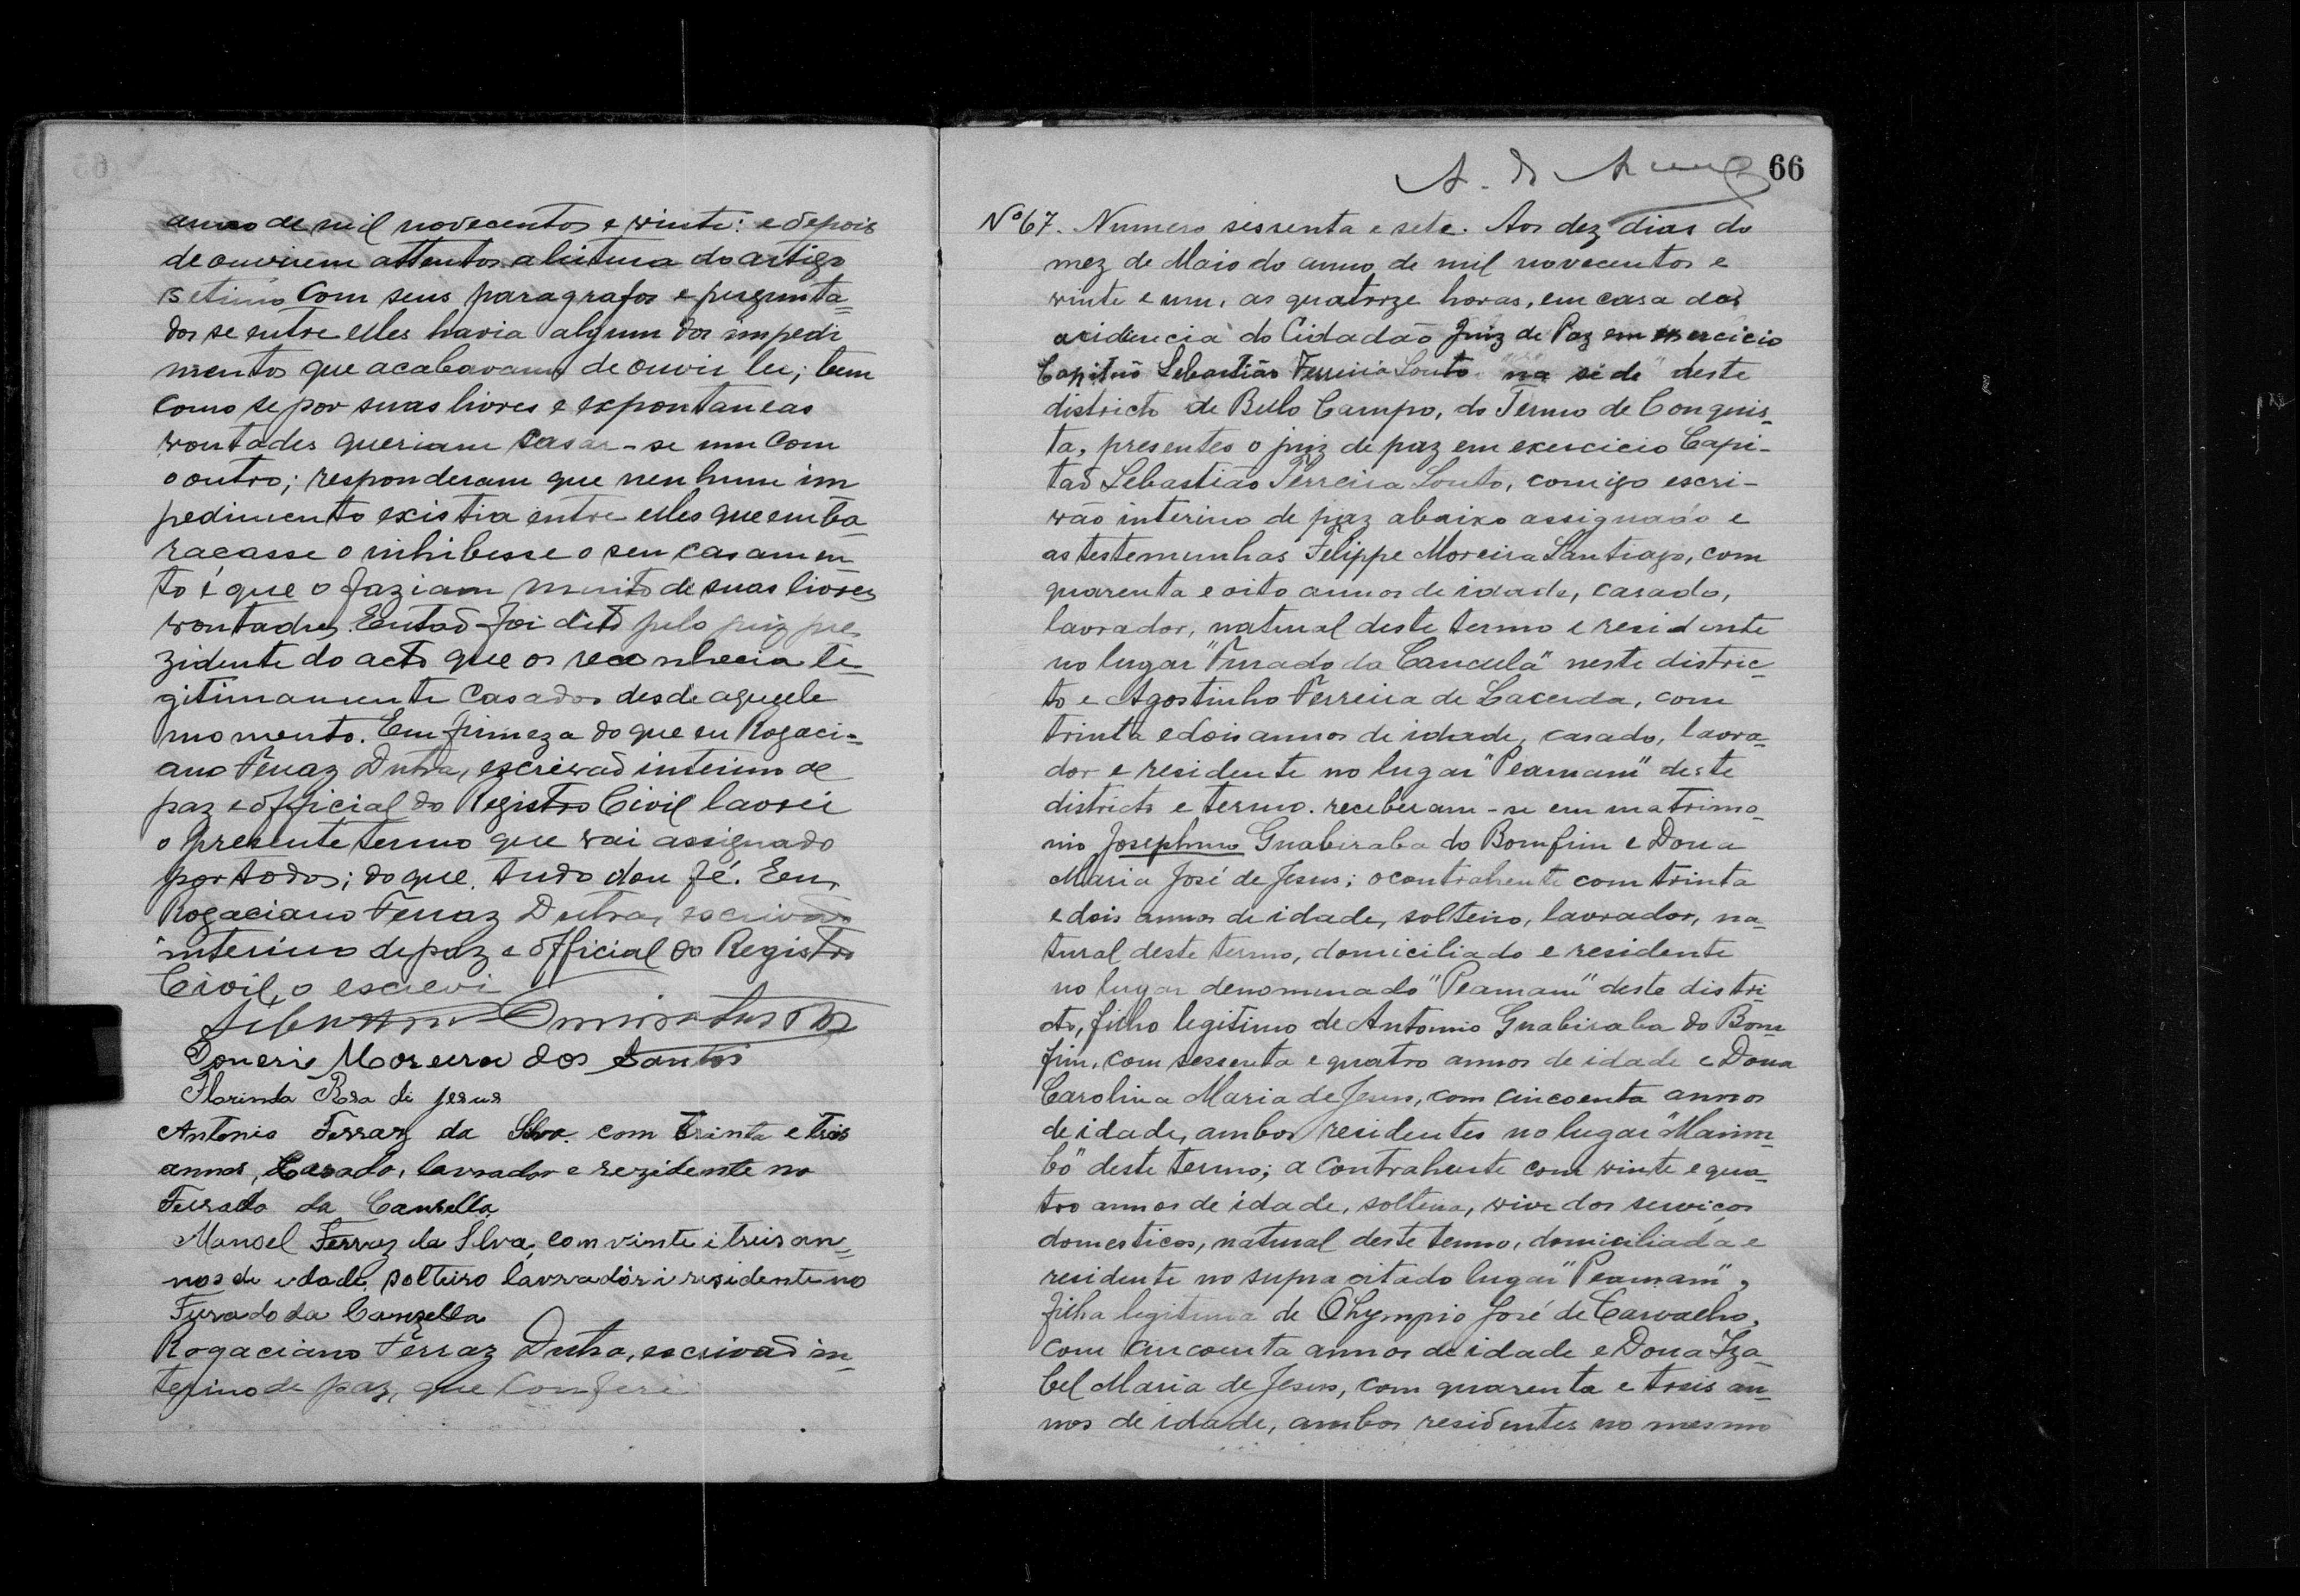 anno de mil novecentos e vinte: e depois
de ouvirem attentos a leitura do artigo
setimo com seus paragrafos e pergunta=
dos se entre elles havia algum dos impedi
mentos que acabavam de ouvir ler; bem
como se por suas livres e expontaneas
vontades queriam casar-se um com
o outro; responderam que nenhum im
pedimento existia entre elles que emba-
raçasse o inhibesse o seu casamen
to é que o faziam muito de suas livres
vontades. Então foi dito pelo juiz pre-
zidente do acto que os reconhecia le-
gitimamente casados desde aquele
momento. Em firmeza do que eu Rogaci=
ano Ferraz Dutra, escrivaõ interino de
paz e official do Registro Civil lavrei
o presente termo que vai assignado
por todos; do que, tudo dou fé. Eeu,
Rogaciano Ferraz Dutra, escrivaõ
interino de paz e official do Registro
Civil, o escrevi
Moreira dos Santos
Florinda Rosa di Jesus
Antonio Ferraz da Silva com trinta e treis
annos, Casado, lavrador e rezidente no
Furado da Cansella
Manoel Ferraz da Silva, com vinte i treis an=
nos de idade, solteiro lavrador i residente no
Furado da Canzella
Rogaciano Ferraz Dutra, escrivaõ in=
terino de paz, que conferi
66
Nº 67. Numero sessenta e sete. Aos dez dias do
mez de Maio do anno de mil novecentos e
vinte e um, as quatorze horas, em casa da
residencia do Cidadão Juiz de Paz em exercicio
Capitão Sebastião Ferreira Souto na séde deste
districto de Bello Campo, do Termo de Conquis-
ta, presentes o juiz de paz em exercicio Capi-
taõ Sebastião Ferreira Souto, comigo escri-
vão interino de paz abaixo assignado e
as testemunhas Felippe Moreira Santiago, com
quarenta e oito annos de idade, casado,
lavrador, natural deste termo e residente
no lugar "Furado da Cancela" neste distric-
to e Agostinho Ferreira de Lacerda, com
trinta e dois annos de idade, casado, lavra-
dor e residente no lugar "Peamam" deste
districto e termo. receberam-se em matrimo-
nio Josephino Guabiraba do Bomfim e Dona
Maria José de Jesus; o contrahente com trinta
e dois annos de idade, solteiro, lavrador, na-
tural deste termo, domiciliado e residente
no lugar denominado "Peamam" deste distri-
cto, filho legitimo de Antonio Guabiraba do Bom
fim, com sessenta e quatro annos de idade e Dona
Carolina Maria de Jesus, com cincoenta annos
de idade, ambos residentes no lugar "Marim-
bó" deste termo; a contrahente com vinte e qua-
tro annos de idade, solteira, vive dos serviços
domesticos, natural deste termo, domiciliada e
residente no supra citado lugar "Peamam",
filha legitima de Olympio José de Carvalho,
com cincoenta annos de idade e Dona Iza-
bel Maria de Jesus, com quarenta e treis an-
nos de idade, ambos residentes no mesmo